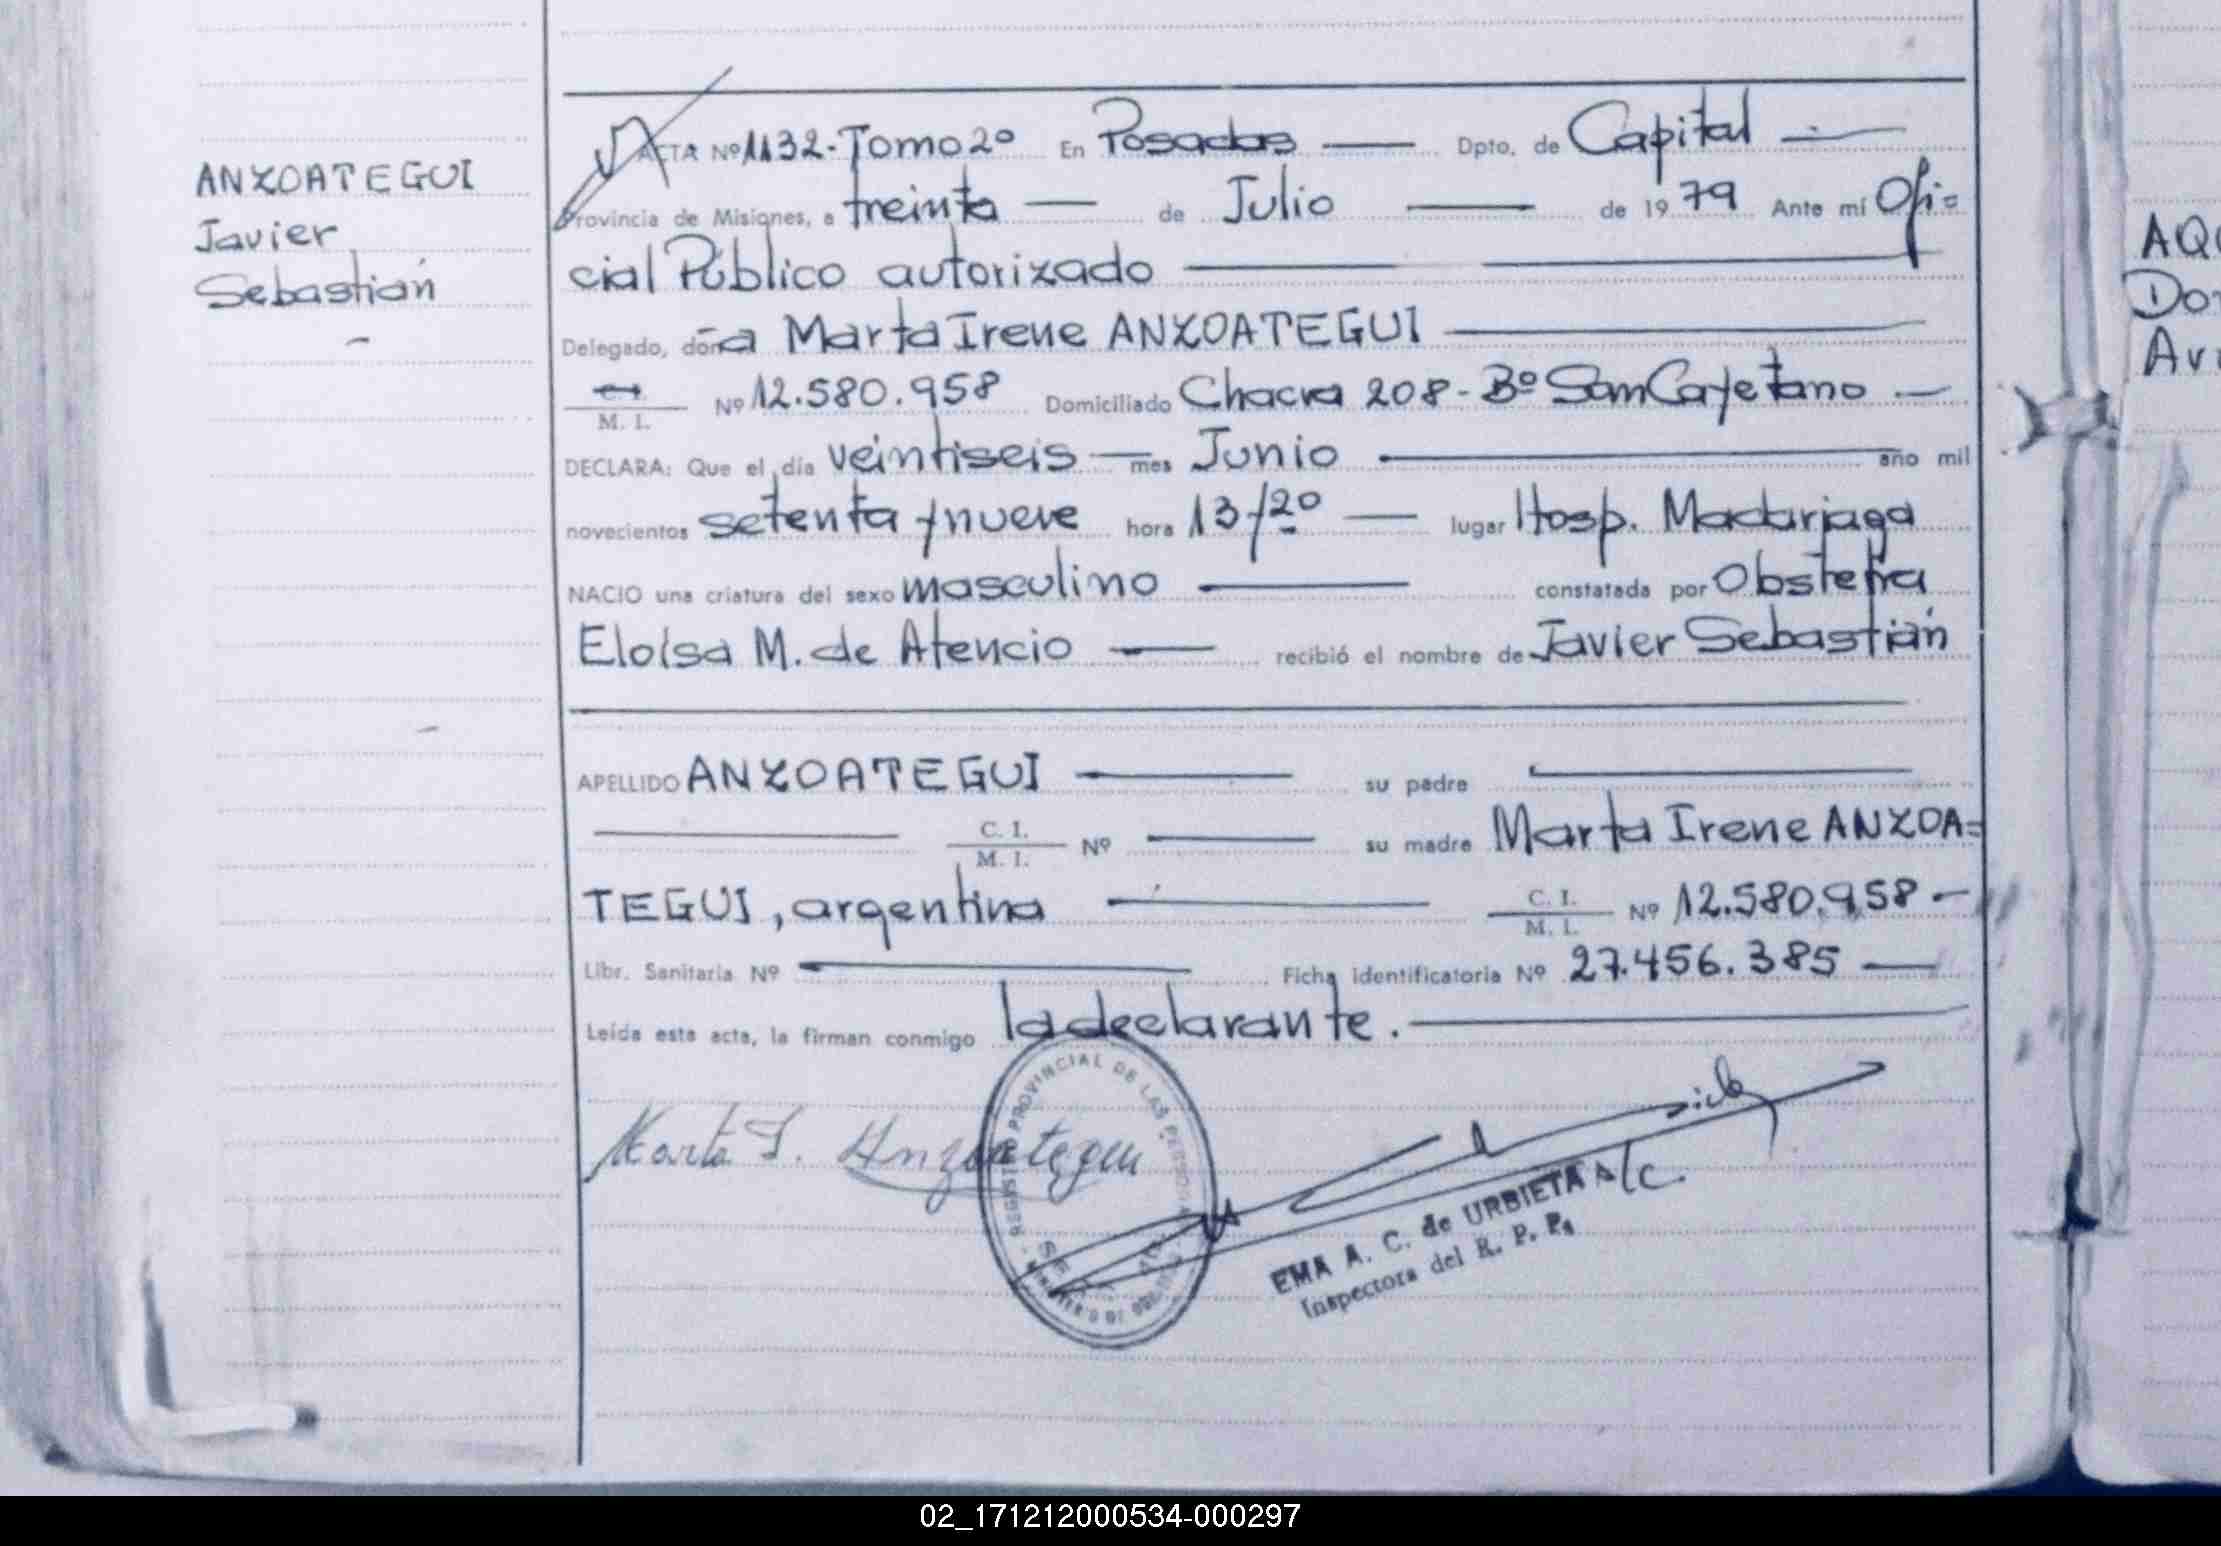 ANZOATEGUI
Javier
Sebastián
ACTA Nº 1132-Tomo 2º En Posadas Dpto. de Capital
Provincia de Misiones, a treinta de Julio de 1979 Ante mí Ofi=
cial Público autorizado
Delegado, doña Marta Irene ANZOATEGUI
M. I. Nº 12.580.958 Domiciliado Chacra 208-Bº San Cayetano
DECLARA: Que el día veintiseis mes Junio año mil
novecientos setenta y nueve hora 13/20 lugar Hosp. Madariaga
NACIO una criatura del sexo masculino constatada por Obstetra
Eloísa M. de Atencio recibió el nombre de Javier Sebastián
APELLIDO ANZOATEGUI su padre
C. I.
M. I. Nº su madre Marta Irene ANZOA=
TEGUI, argentina C. I.
M. I. Nº 12.580.958-
Libr. Sanitaria Nº Ficha identificatoria Nº 27.456.385
Leída esta acta, la firman conmigo la declarante.
Marta I. Anzoategui
REGISTRO PROVINCIAL DE LAS PERSONAS
EMA A. C. de URBIETA A/C.
Inspectora del R. P. P.
AQU
Dor
Ave
02_171212000534-000297